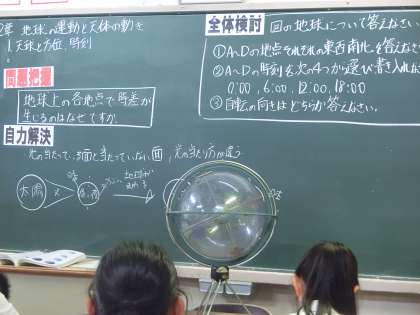 2章 地球の運動と天体の動き
1.天球と方位、時刻
問題把握
地球上の各地点で時差が
生じるのはなぜですか。
自力解決
光の当たっている面と当たっていない面、光の当たり方が違う
太陽
全体検討
図の地球について答えなさい。
①A~Dの地点それぞれの東西南北を答えなさい
②A~Dの時刻を次の4つから選び書き入れな
0:00, 6:00, 12:00, 18:00
③自転の向きはどちらか答えなさい。